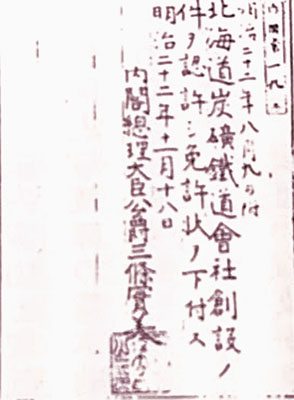 明治二十二年八月九日附
北海道炭礦鐵道會社創設ノ
件ヲ認許シ免許狀ヲ下付ス
明治二十二年十一月十八日
內閣總理大臣公爵三條實美